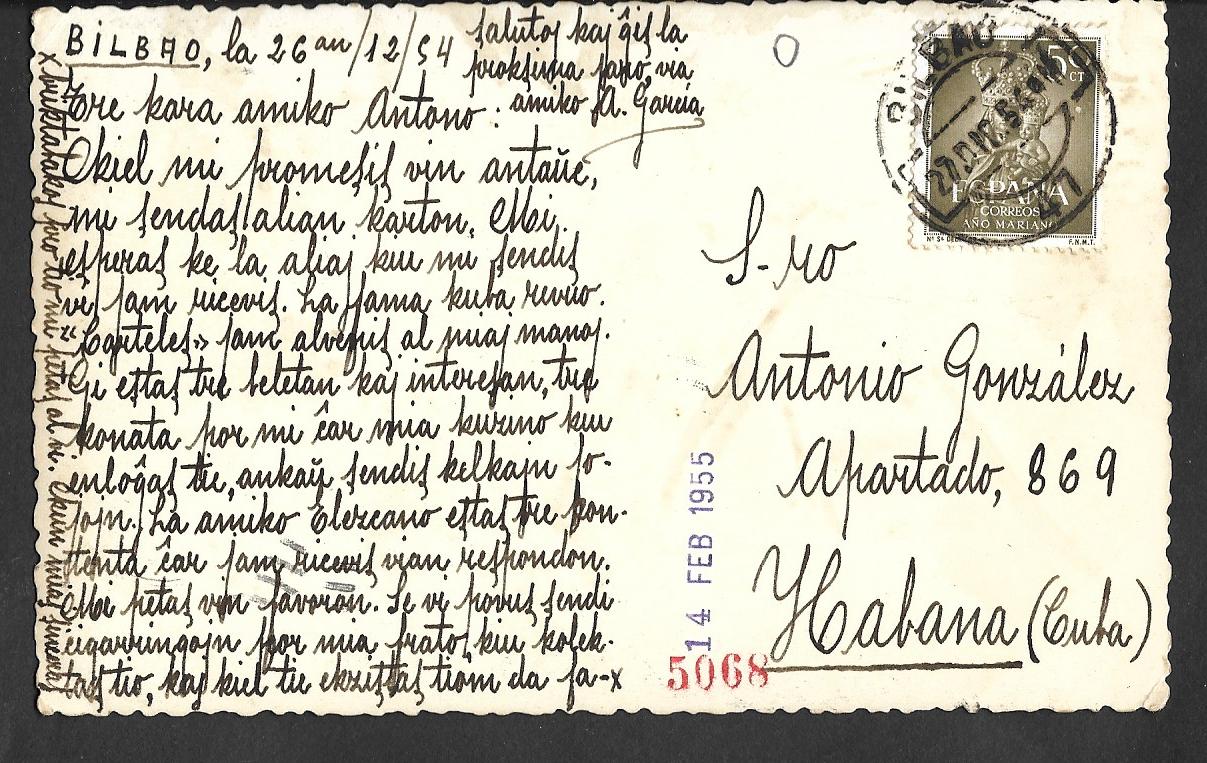 BILBAO, la 26an/12/54
Tre kara amiko Antono:
Ekiel mi promesis vin antaŭe,
mi sendas alian karton. Mi
esperas ke la aliaj kiu mi sendis
vi jam ricevis. La fama kuba revuo
«Carteles» jam alvenis al miaj manoj.
Ĝi estas tre beletan kaj interesan, tre
konata por mi ĉar mia kuzino kiu
enloĝas tie, ankaŭ sendis kelkajn fo-
jojn. La amiko Elezcano estas tre kon-
tenta ĉar jam ricevis vian respondon.
Mi petas vin favoron. Se vi povus sendi
cigarringojn por mia frato, kiu kolek-
tas tio, kaj kiel tie ekzistas tiom da fa-x
x pro tio mi petas al vi. miaj
salutoj kaj ĝis la
proksima fojo, via
amiko A. García
5 CTS
BILBAO
ESPAÑA
CORREOS
AÑO MARIANO
F.N.M.T.
S-ro
Antonio González
Apartado, 869
Habana (Cuba)
14 FEB 1955
5068